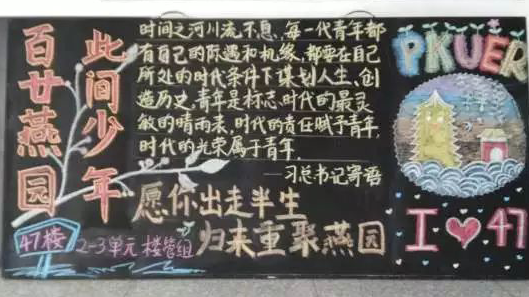 百廿燕园
此间少年
时间之河川流不息，每一代青年都
有自己的际遇和机缘，都要在自己
所处的时代条件下谋划人生、创
造历史，青年是标志时代的最灵
敏的晴雨表，时代的责任赋予青年，
时代的光荣属于青年。
——习总书记寄语
愿你出走半生
归来重聚燕园
47楼
2-3单元 楼管组
PKUER
I ❤ 47